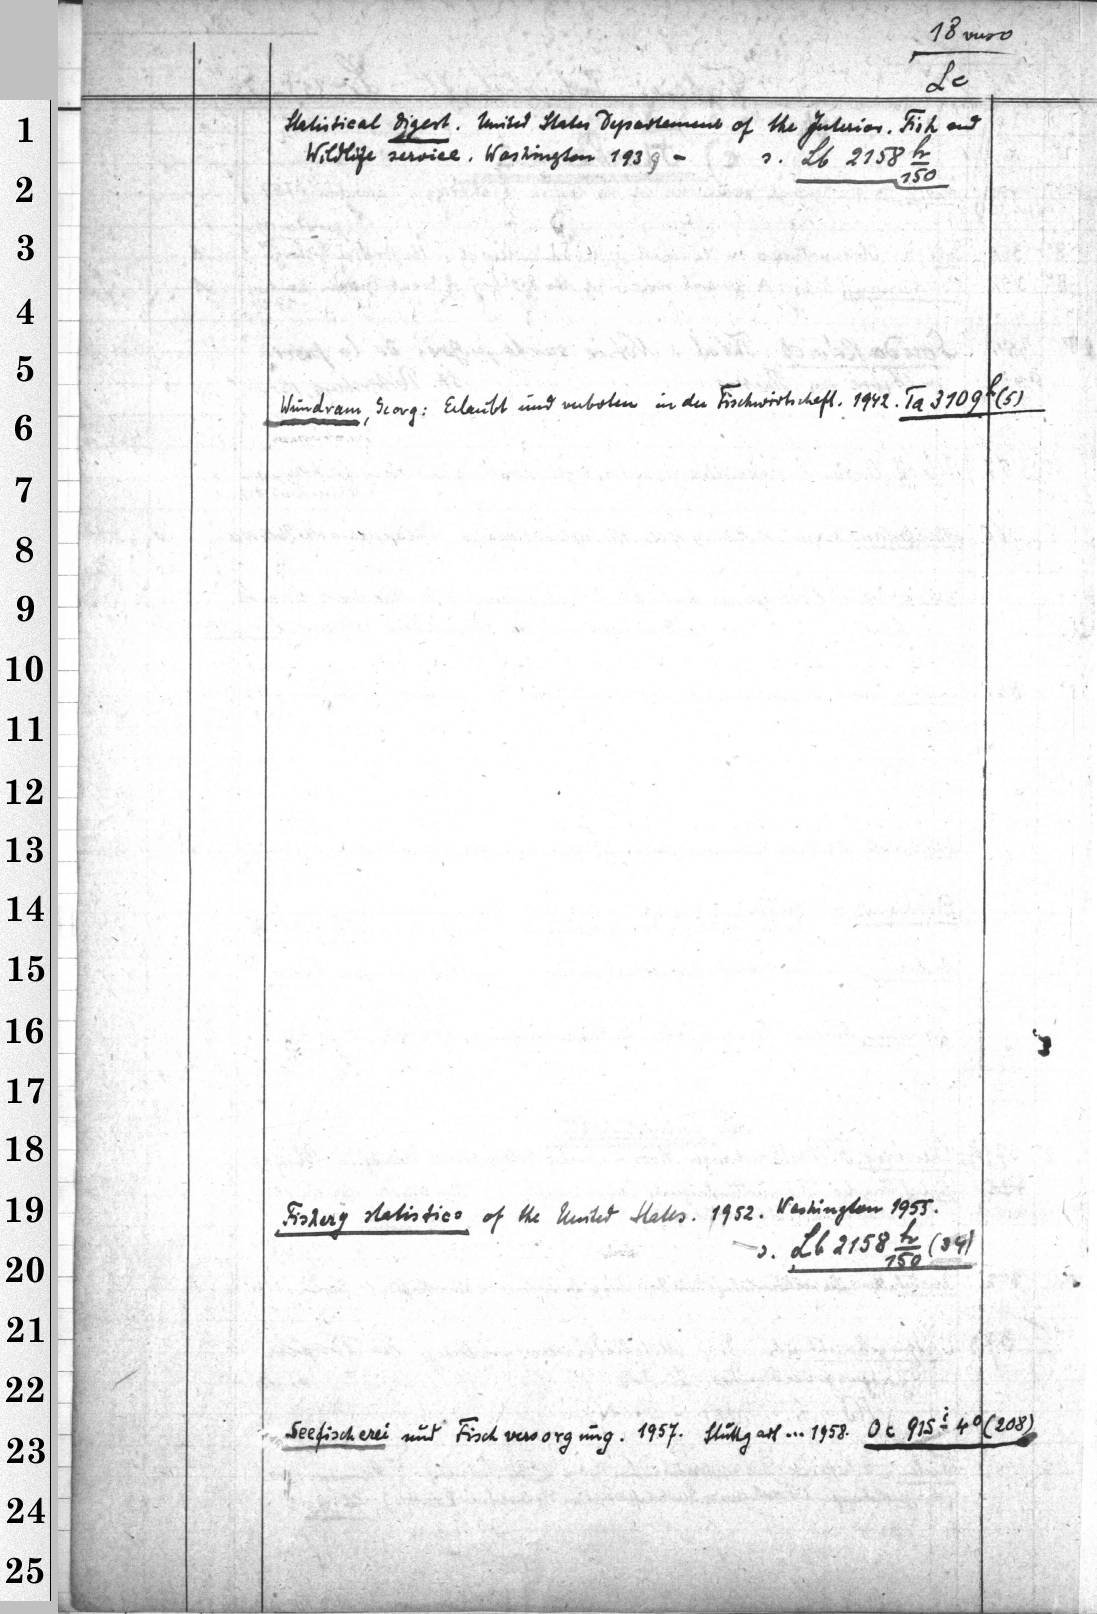 18 verso
Lc
1
Statistical Digest. United States Departement of the Interior. Fish and
Wildlife service. Washington 1939 - s. Lb 2158 h/150
2
3
4
5
Wundram, Georg: Erlaubt und verboten in der Fischwirtschaft. 1942. Ta 3109 h (5)
6
7
8
9
10
11
12
13
14
15
16
17
18
19
Fishery statistics of the United States. 1952. Washington 1955.
s. Lb 2158 h/150 (34)
20
21
22
Seefischerei und Fischversorgung. 1957. Stuttgart ... 1958. Oc 915 i 4° (208)
23
24
25